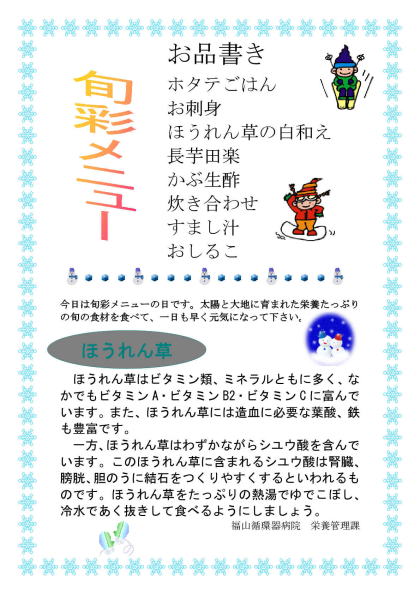 旬彩メニュー
お品書き
ホタテごはん
お刺身
ほうれん草の白和え
長芋田楽
かぶ生酢
炊き合わせ
すまし汁
おしるこ
今日は旬彩メニューの日です。太陽と大地に育まれた栄養たっぷり
の旬の食材を食べて、一日も早く元気になって下さい。
ほうれん草
ほうれん草はビタミン類、ミネラルともに多く、な
かでもビタミンA・ビタミンB2・ビタミンCに富んで
います。また、ほうれん草には造血に必要な葉酸、鉄
も豊富です。
一方、ほうれん草はわずかながらシュウ酸を含んで
います。このほうれん草に含まれるシュウ酸は腎臓、
膀胱、胆のうに結石をつくりやすくするといわれるも
のです。ほうれん草をたっぷりの熱湯でゆでこぼし、
冷水であく抜きして食べるようにしましょう。
福山循環器病院　栄養管理課